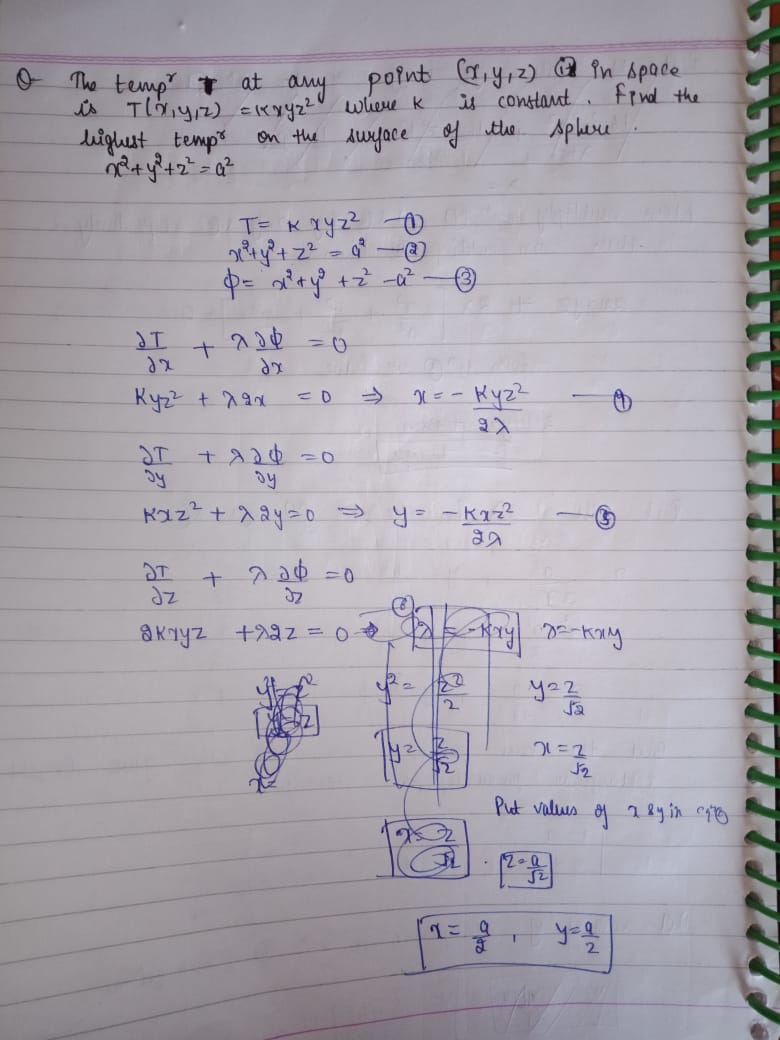 Q The tempʳ T at any point (x,y,z) in space
is T(x,y,z) = Kxyz² where K is constant. Find the
highest tempʳ on the surface of the sphere.
x²+y²+z² = a²
T = K xyz² —①
x²+y²+z² = a² —②
ϕ = x²+y²+z²-a² —③
∂T/∂x + λ ∂ϕ/∂x = 0
Kyz² + λ2x = 0 ⇒ x = - Kyz²/2λ —④
∂T/∂y + λ ∂ϕ/∂y = 0
Kxz² + λ2y = 0 ⇒ y = - Kxz²/2λ —⑤
∂T/∂z + λ ∂ϕ/∂z = 0
⑥
2Kxyz + λ2z = 0 → λ = -Kxy λ = -Kxy
y² = z²/2 y = z/√2
y = z/√2 x = z/√2
Put values of x & y in
x = z/√2 z = a/√2
x = a/2 , y = a/2